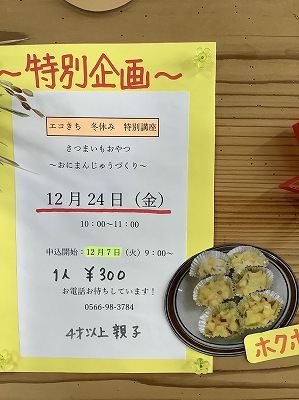 ～特別企画～
エコきち　冬休み　特別講座
さつまいもおやつ
～おにまんじゅうづくり～
12月24日（金）
10：00～11：00
申込開始：12月7日（火）9：00～
1人 ¥300
お電話お待ちしています！
0566-98-3784
4才以上 親子
ホクホ